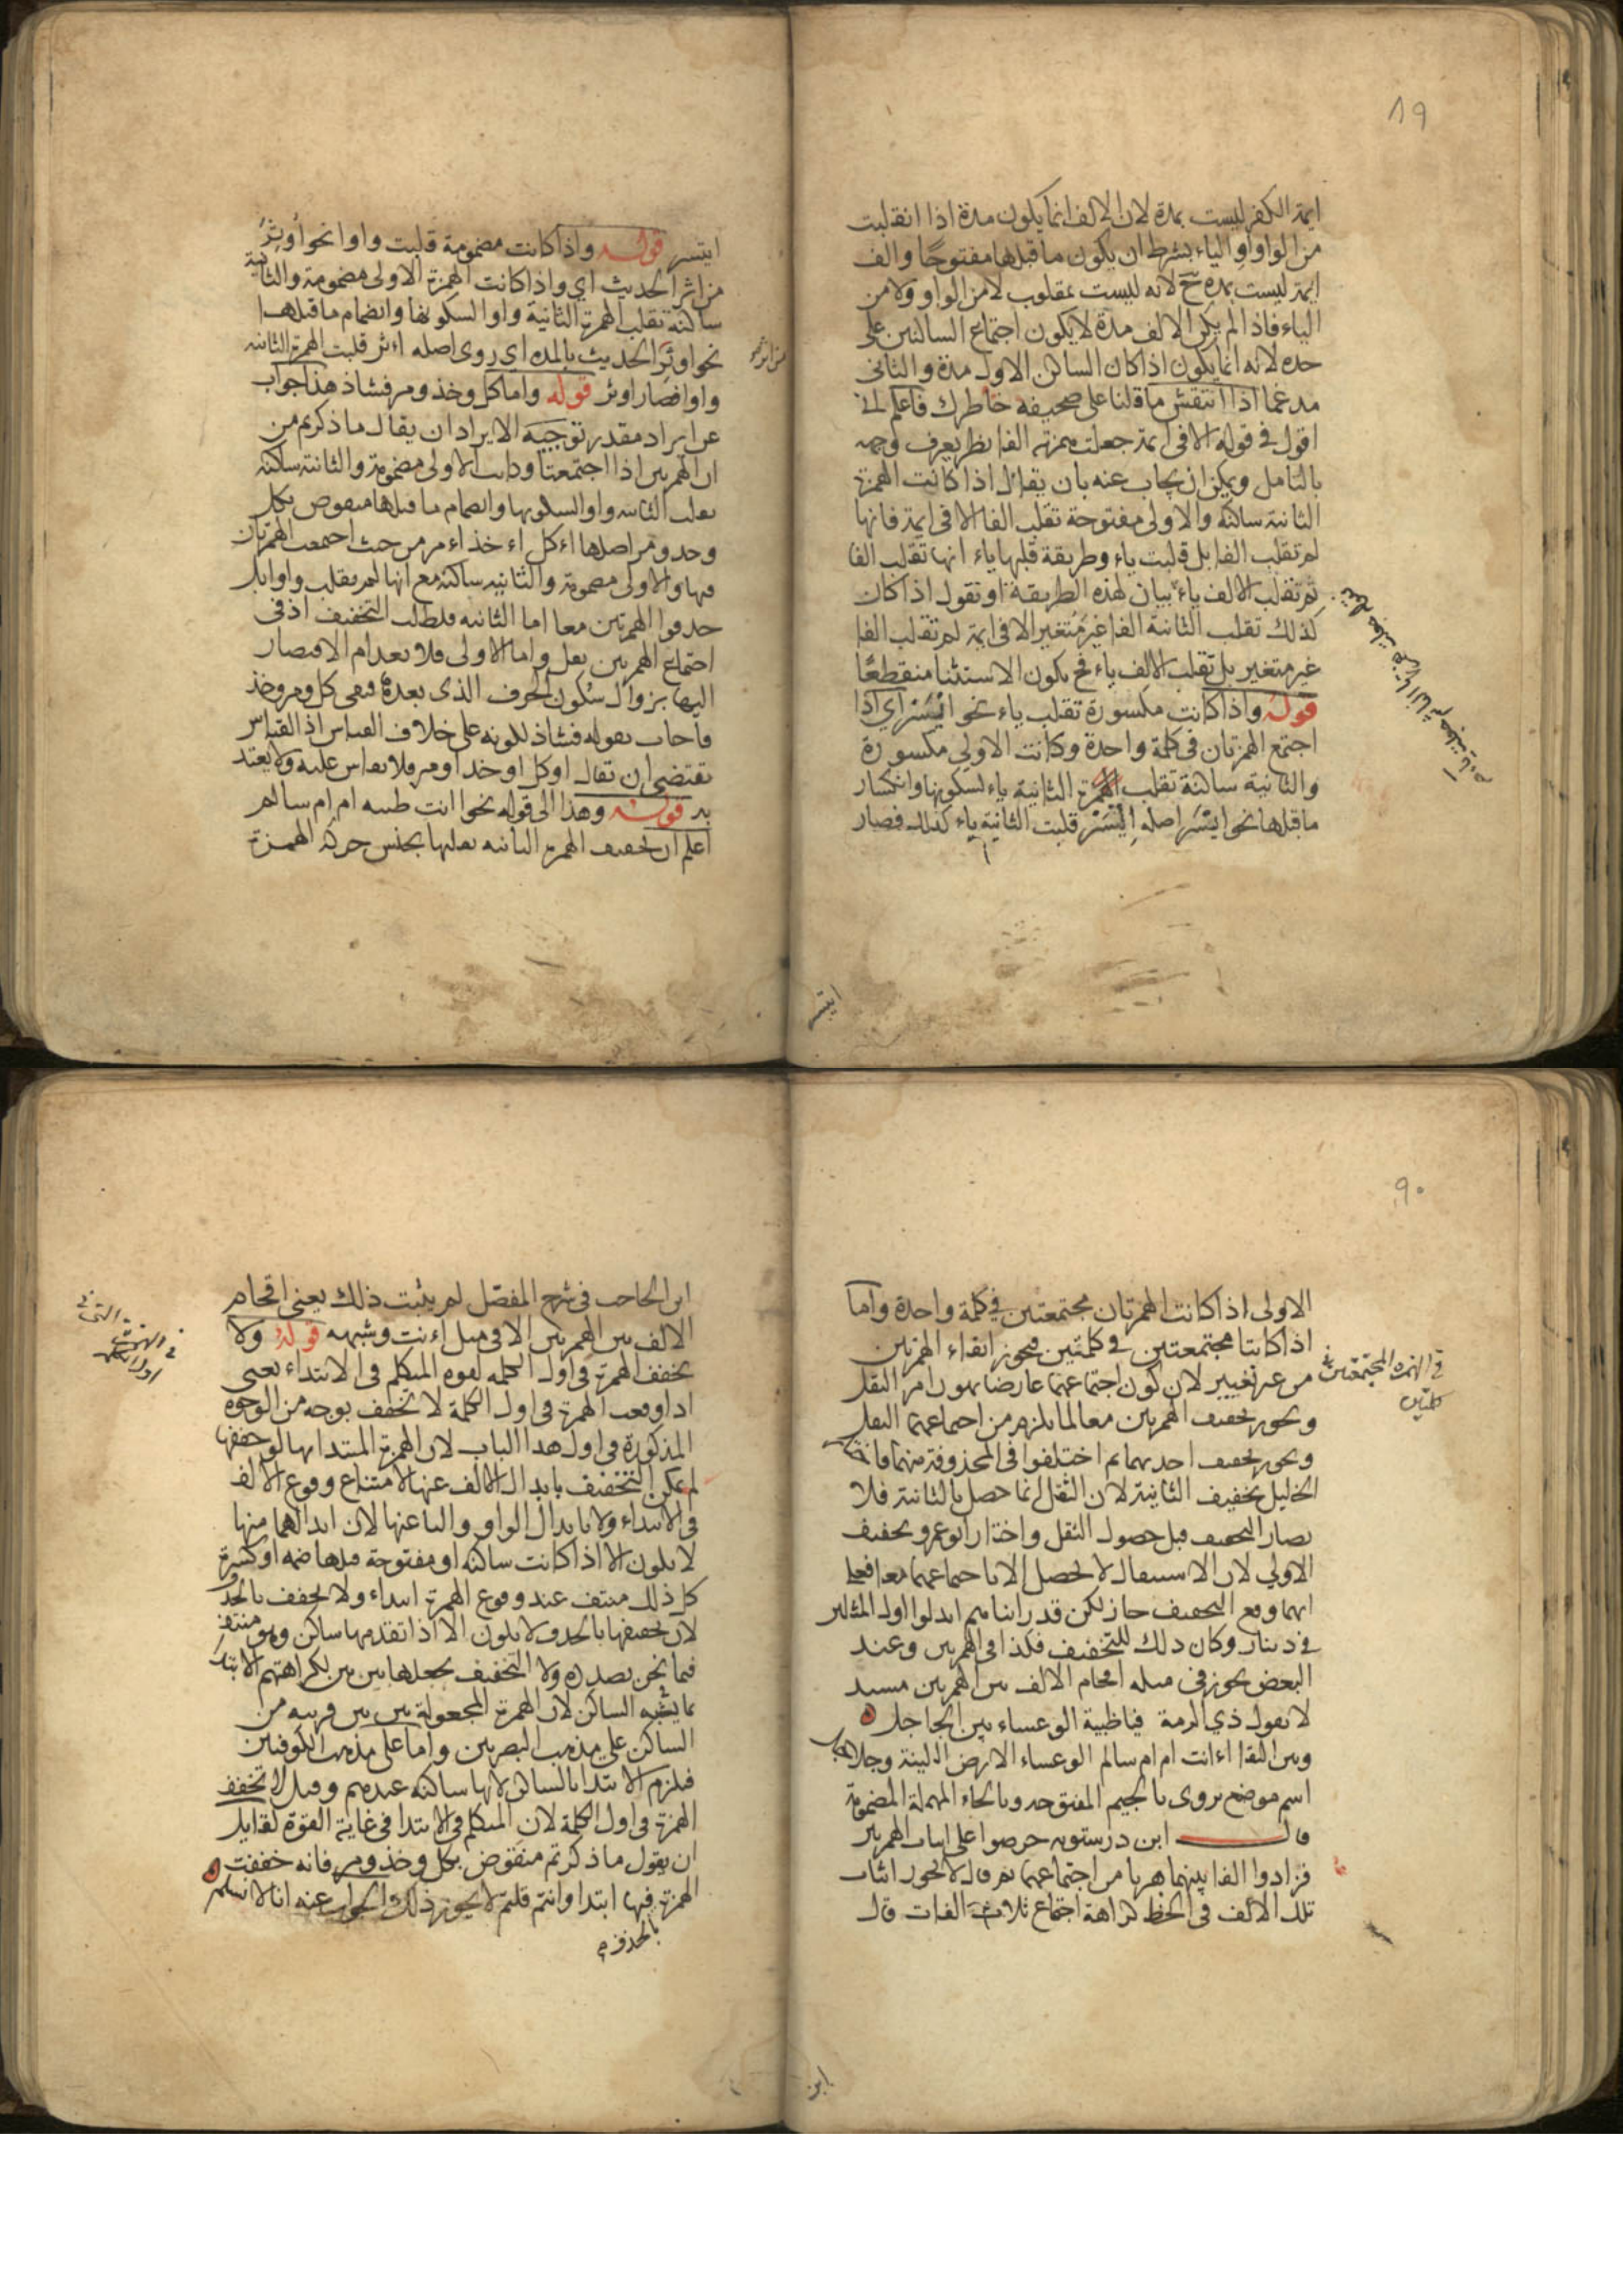 ٨٩
ايمة الكفر ليست بمدة لان الالف انما يكون مدة اذا انقلبت
من الواو او الياء بشرط ان يكون ما قبلها مفتوحا والف
ايمة ليست بمدة ح لانه ليست بمقلوب لا من الواو ولا من
الياء فاذا لم يكن الالف مدة لا يكون اجتماع الساكنين على
حده لانه انما يكون اذا كان الساكن الاول مدة والثاني
مدغما اذا انتقش ما قلنا على صحيفة خاطرك فاعلم اني
اقول في قوله الا في ايمة جعلت همزته الفا نظر يعرف وجهه
بالتامل ويمكن ان يجاب عنه بان يقال اذا كانت الهمزة
الثانية ساكنة والاولى مفتوحة تقلب الفا الا في ايمة فانها
لم تقلب الفا بل قلبت ياء وطريقة قلبها ياء انها تقلب الفا
ثم تقلب الالف ياء بيان لهذه الطريقة او نقول اذا كان
كذلك تقلب الثانية الفا غير متغير الا في ايمة لم تقلب الفا
غير متغير بل تقلب الالف ياء فح يكون الاستثنا منقطعا
قوله واذا كانت مكسورة تقلب ياء نحو ايسر اي اذا
اجتمع الهمزتان في كلمة واحدة وكانت الاولي مكسورة
والثانية ساكنة تقلب الهمزة الثانية ياء لسكونها وانكسار
ما قبلها نحو ايسر اصله ائسر قلبت الثانية ياء كذلك فصار
ايتسر
ايتسر قوله واذا كانت مضمومة قلبت واوا نحو اوثر
من اثر الحديث اي واذا كانت الهمزة الاولى مضمومة والثانية
ساكنة تقلب الهمزة الثانية واوا لسكونها وانضمام ما قبلها
نحو اوثر الحديث بالمد اي روى اصله اءثر قلبت الهمزة الثانية
واوا فصار اوثر قوله واما كل وخذ ومر فشاذ هذا جواب
عن ايراد مقدر توجيه الايراد ان يقال ما ذكرتم من
ان الهمزتين اذا اجتمعتا وكانت الاولى مضمومة والثانية ساكنة
تقلب الثانية واوا لسكونها وانضمام ما قبلها منقوض بكل
وخذ ومر اصلها اءكل اءخذ اءمر من حيث اجتمعت الهمزتان
فيها والاولى مضمومة والثانية ساكنة مع انها لم يقلب واوا بل
حذفوا الهمزتين معا اما الثانية فلطلب التخفيف اذ في
اجتماع الهمزتين ثقل واما الاولى فلانعدام الاقتصار
اليها بزوال سكون الحرف الذي بعدها فبقي كل ومر وخذ
فاجاب بقوله فشاذ لكونه على خلاف القياس اذ القياس
يقتضي ان تقال اوكل اوخذ اومر فلا يقاس عليه ولا يعتد
به قوله وهذا الى قوله نحو اانت طبية ام ام سالم
اعلم ان تخفيف الهمزة الثانية بقلبها بجنس حركة الهمزة
٩٠
الاولى اذا كانت الهمزتان مجتمعتين في كلمة واحدة واما
اذا كانتا مجتمعتين في كلمتين فيجوز ابقاء الهمزتين
من غير تغيير لان كون اجتماعهما عارضا يهون امر الثقل
ويجوز تخفيف الهمزتين معا لما يلزم من اجتماعهما الثقل
ويجوز تخفيف احديهما ثم اختلفوا في المحذوفة منهما
الخليل تخفيف الثانية لان الثقل انما حصل بالثانية فلا
يصار التخفيف قبل حصول الثقل واختار ابو عمرو تخفيف
الاولي لان الاستثقال لا يحصل الا باجتماعهما معا فعلي
ايهما وقع التخفيف جاز لكن قد رايناهم ابدلوا اول المثلين
في دينار وكان ذلك للتخفيف فكذا في الهمزتين وعند
البعض يجوز في مثله اقحام الالف بين الهمزتين مستد
لا بقول ذي الرمة فيا ظبية الوعساء بين الجلاجل
وبين النقا اءانت ام ام سالم الوعساء الارض اللينة وجلاجل
اسم موضع يروى بالجيم المفتوحة وبالحاء المهملة المضمومة
قال ابن درستويه حرصوا على اثبات الهمزتين
فزادوا الفا بينهما هربا من اجتماعهما ثم قال لا يجوز اثبات
تلك الالف في الخط كراهة اجتماع ثلاث الفات قال
في الهمزة المجتمعتين في
كلمتين
ابن
ابن الحاجب في شرح المفصل لم يثبت ذلك يعني اقحام
الالف بين الهمزتين الا في مثل اءنت وشبهه قوله ولا
يخفف الهمزة في اول الكلمة لقوة المتكلم في الابتداء يعني
اذا وقعت الهمزة في اول الكلمة لا تخفف بوجه من الوجوه
المذكورة في اول هذا الباب لان الهمزة المبتدا بها لو خففها
لم يمكن التخفيف بابدال الالف عنها لامتناع وقوع الالف
في الابتداء ولا بابدال الواو والياء عنها لان ابدالهما منها
لا يكون الا اذا كانت ساكنة او مفتوحة قبلها ضمة او كسرة
كل ذلك منتف عند وقوع الهمزة ابتداء ولا تخفف بالحذف
لان تخفيفها بالحذف لا يكون الا اذا تقدمها ساكن وهو منتف
فيما نحن بصدده ولا التخفيف بجعلها بين بين لكراهتهم الابتدا
بما يشبه الساكن لان الهمزة المجعولة بين بين قريبة من
الساكن على مذهب البصريين واما على مذهب الكوفيين
فيلزم الابتدا بالساكن لانها ساكنة عندهم وقيل لا تخفف
الهمزة في اول الكلمة لان المتكلم في الابتدا في غاية القوة لقايل
ان يقول ما ذكرتم منقوض بكل وخذ ومر فانه خففت
الهمزة فيها ابتدا وانتم قلتم لا يجوز ذلك والجواب عنه انا لا نسلم
بالحذف
في الهمزة التي في
اول الكلمة